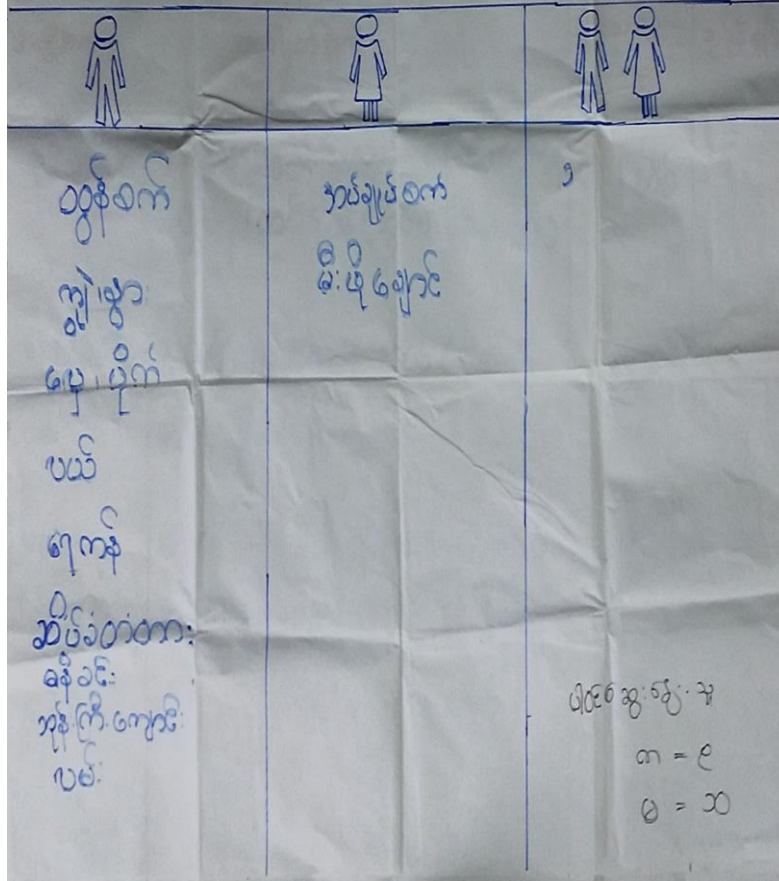 ထွန်စက်
ကျွဲ၊နွား
လှေ၊ပိုက်
လယ်
ရေကန်
ဆိပ်ခံတံတား
ဓနိခင်း
ဘုန်းကြီးကျောင်း
လမ်း
အပ်ချုပ်စက်
မီးဖိုချောင်
၅
ပါဝင်ဆွေးနွေးသူ
ကျ = ၉
မ = ၁၁